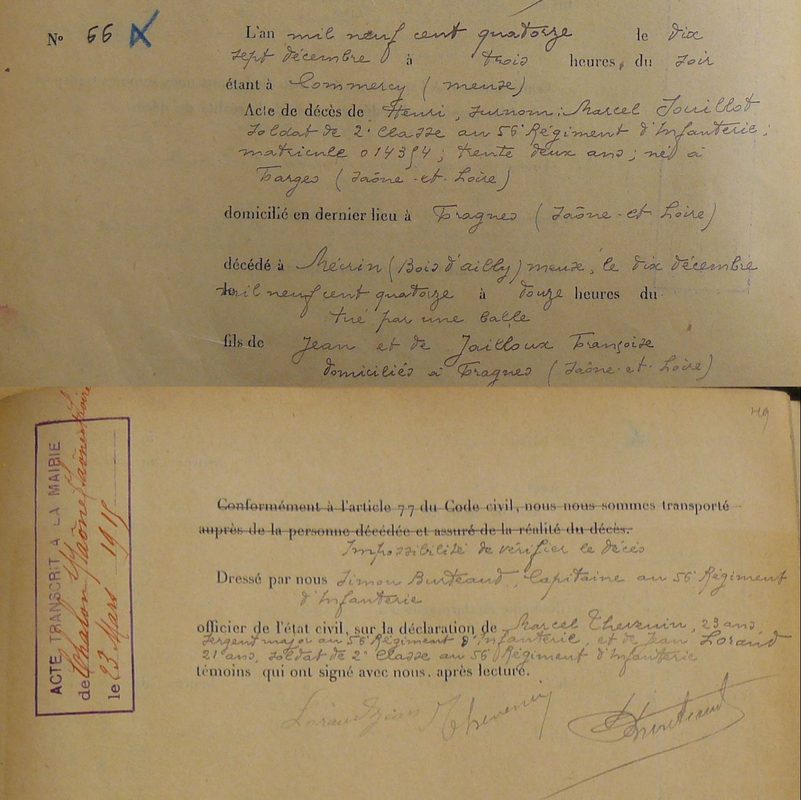 N° 66 L'an mil neuf cent quatorze le dix
sept décembre à trois heures, du soir
étant à Commercy (meuse)
Acte de décès de Henri, surnom: Marcel Jouillot
soldat de 2e Classe au 56e Régiment d'Infanterie;
matricule 014354; trente deux ans; né à
Farges (Saône-et-Loire)
domicilié en dernier lieu à Fragnes (Saône-et-Loire)
décédé à Mécrin (Bois d'ailly) meuse, le dix décembre
mil neuf cent quatorze à douze heures du
tué par une balle
fils de Jean et de Jailloux Françoise
domiciliés à Fragnes (Saône-et-Loire)
49
ACTE TRANSCRIT A LA MAIRIE
de Chalon s/Saône
le 23 Mars 1915
Conformément à l'article 77 du Code civil, nous nous sommes transporté
auprès de la personne décédée et assuré de la réalité du décès.
Impossibilité de vérifier le décès
Dressé par nous Simon Burteaud, Capitaine au 56e Régiment
d'Infanterie
officier de l'état civil, sur la déclaration de Marcel Thevenin, 23 ans
sergent major au 56e Régiment d'Infanterie, et de Jean Loraud
21 ans, soldat de 2e Classe au 56e Régiment d'Infanterie
témoins qui ont signé avec nous, après lecture.
Loraud Jean Thevenin